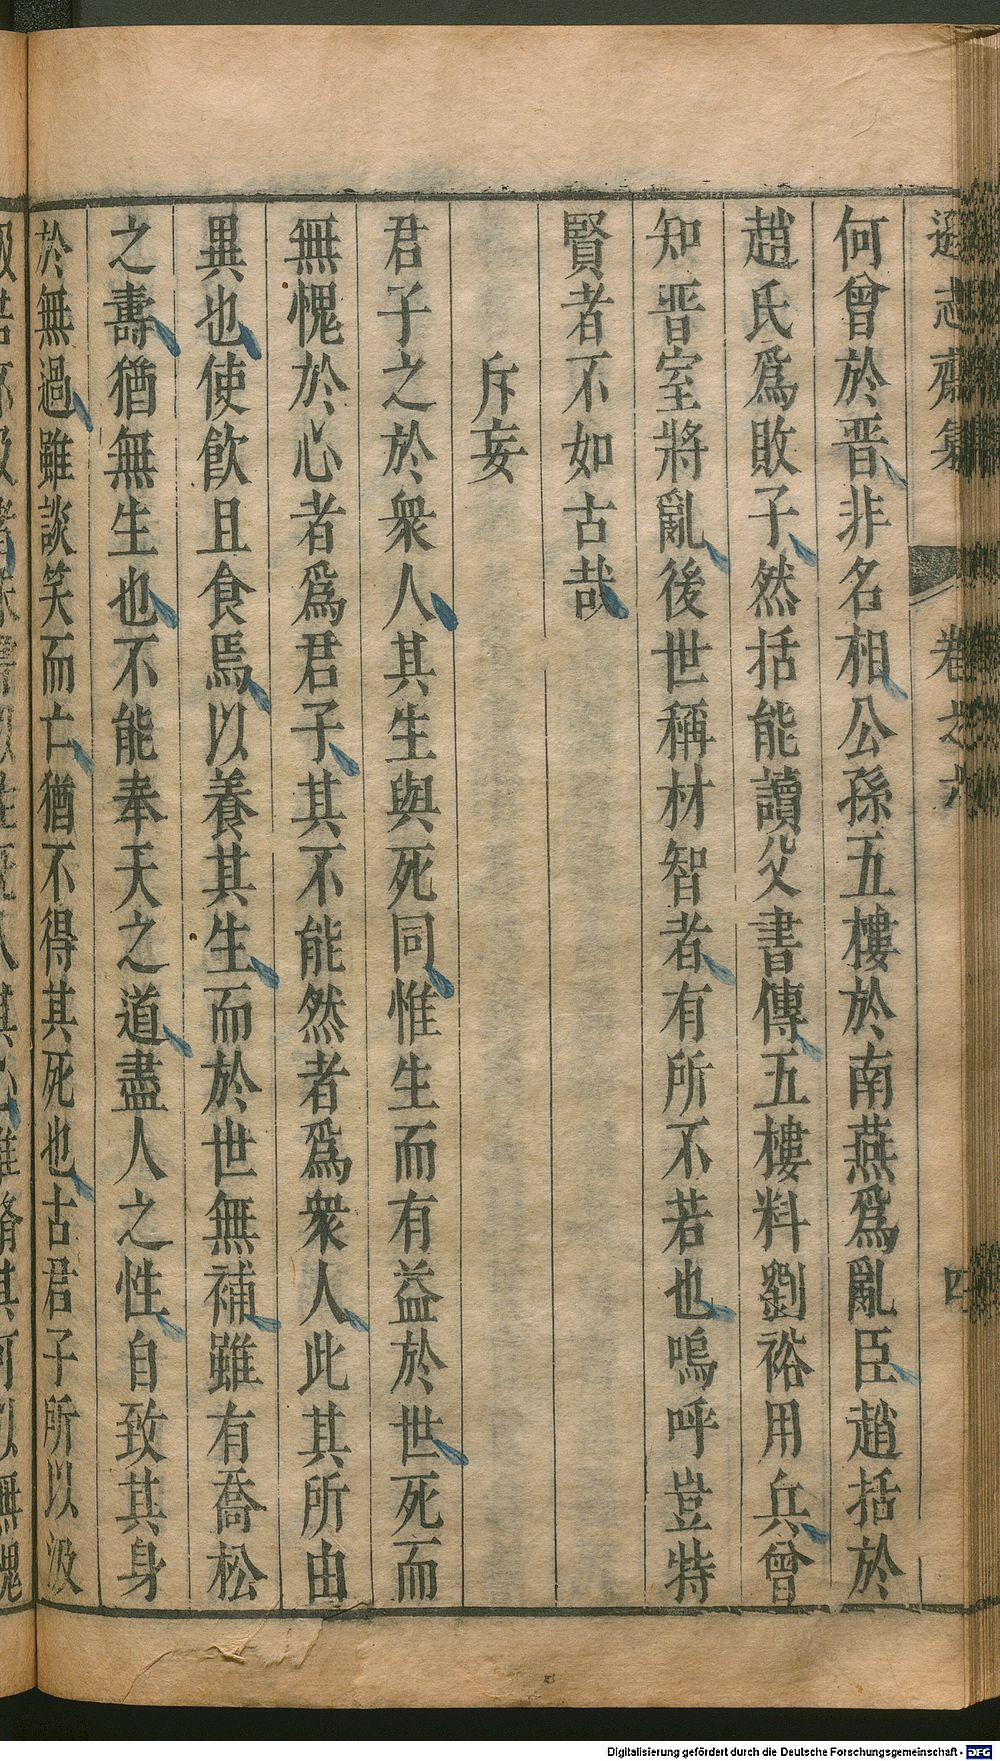 遜志齋集 卷之六 四
何曾於晋非名相公孫五樓於南燕爲亂臣趙括於
趙氏爲敗子然括能讀父書傳五樓料劉裕用兵曾
知晋室將亂後世稱材智者有所不若也嗚呼豈特
賢者不如古哉
斥妄
君子之於衆人其生與死同惟生而有益於世死而
無愧於心者爲君子其不能然者爲衆人此其所由
異也使飮且食焉以養其生而於世無補雖有喬松
之壽猶無生也不能奉天之道盡人之性自致其身
於無過雖談笑而亡猶不得其死也古君子所以汲
Digitalisierung gefördert durch die Deutsche Forschungsgemeinschaft - DFG